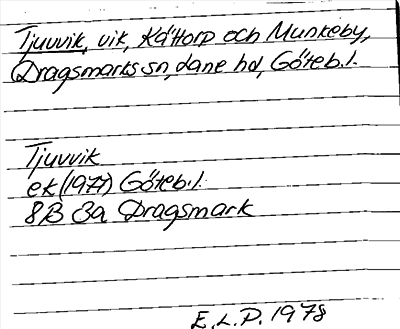 Tjuvvik, vik, Kåttorp och Munkeby,
Dragsmarks sn, Lane hd, Göteb. l.
Tjuvvik
ek (1977) Göteb. l.
8B 3a Dragsmark
E.L.P. 1978